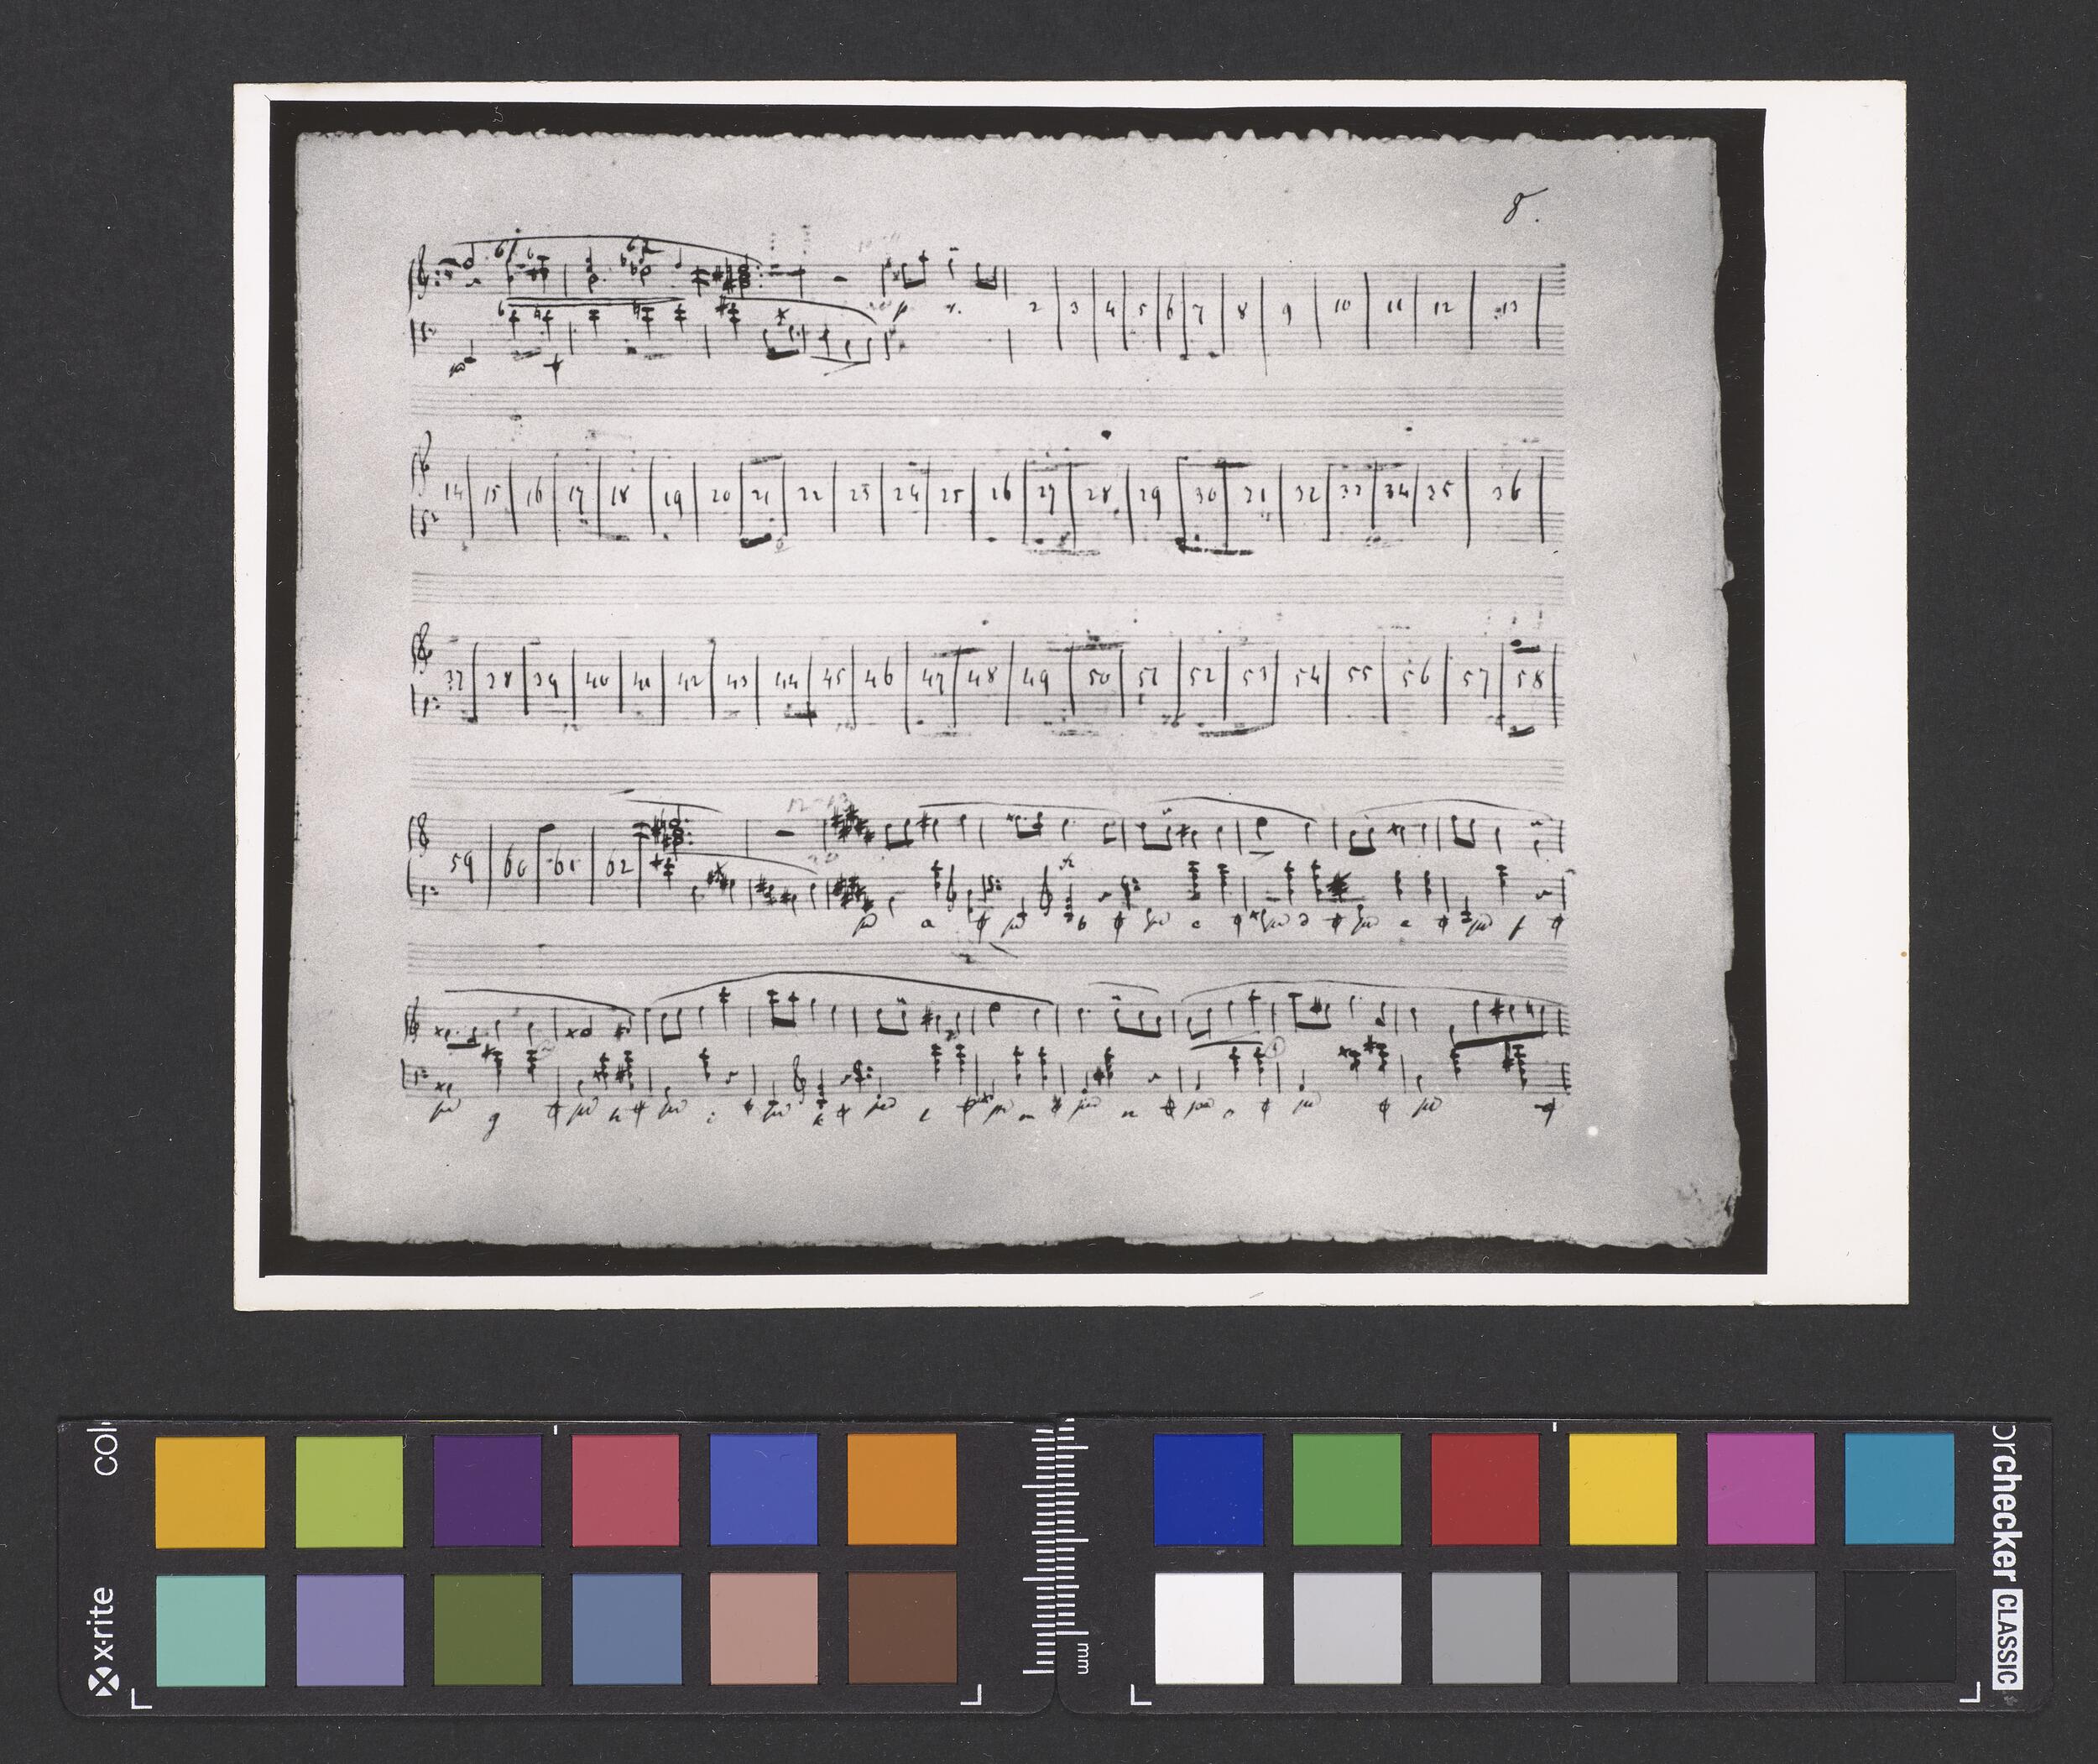 8.
2 3 4 5 6 7 8 9 10 11 12 13
14 15 16 17 18 19 20 21 22 23 24 25 26 27 28 29 30 31 32 33 34 35 36
37 38 39 40 41 42 43 44 45 46 47 48 49 50 51 52 53 54 55 56 57 58
59 60 61 62
a b c d e f
g h i k l m n o
x-rite
col
orchecker CLASSIC
mm